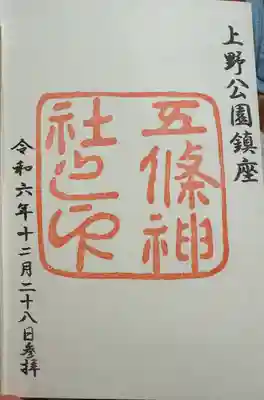 上野公園鎮座
五條神
社之印
令和六年十二月二十八日参拝